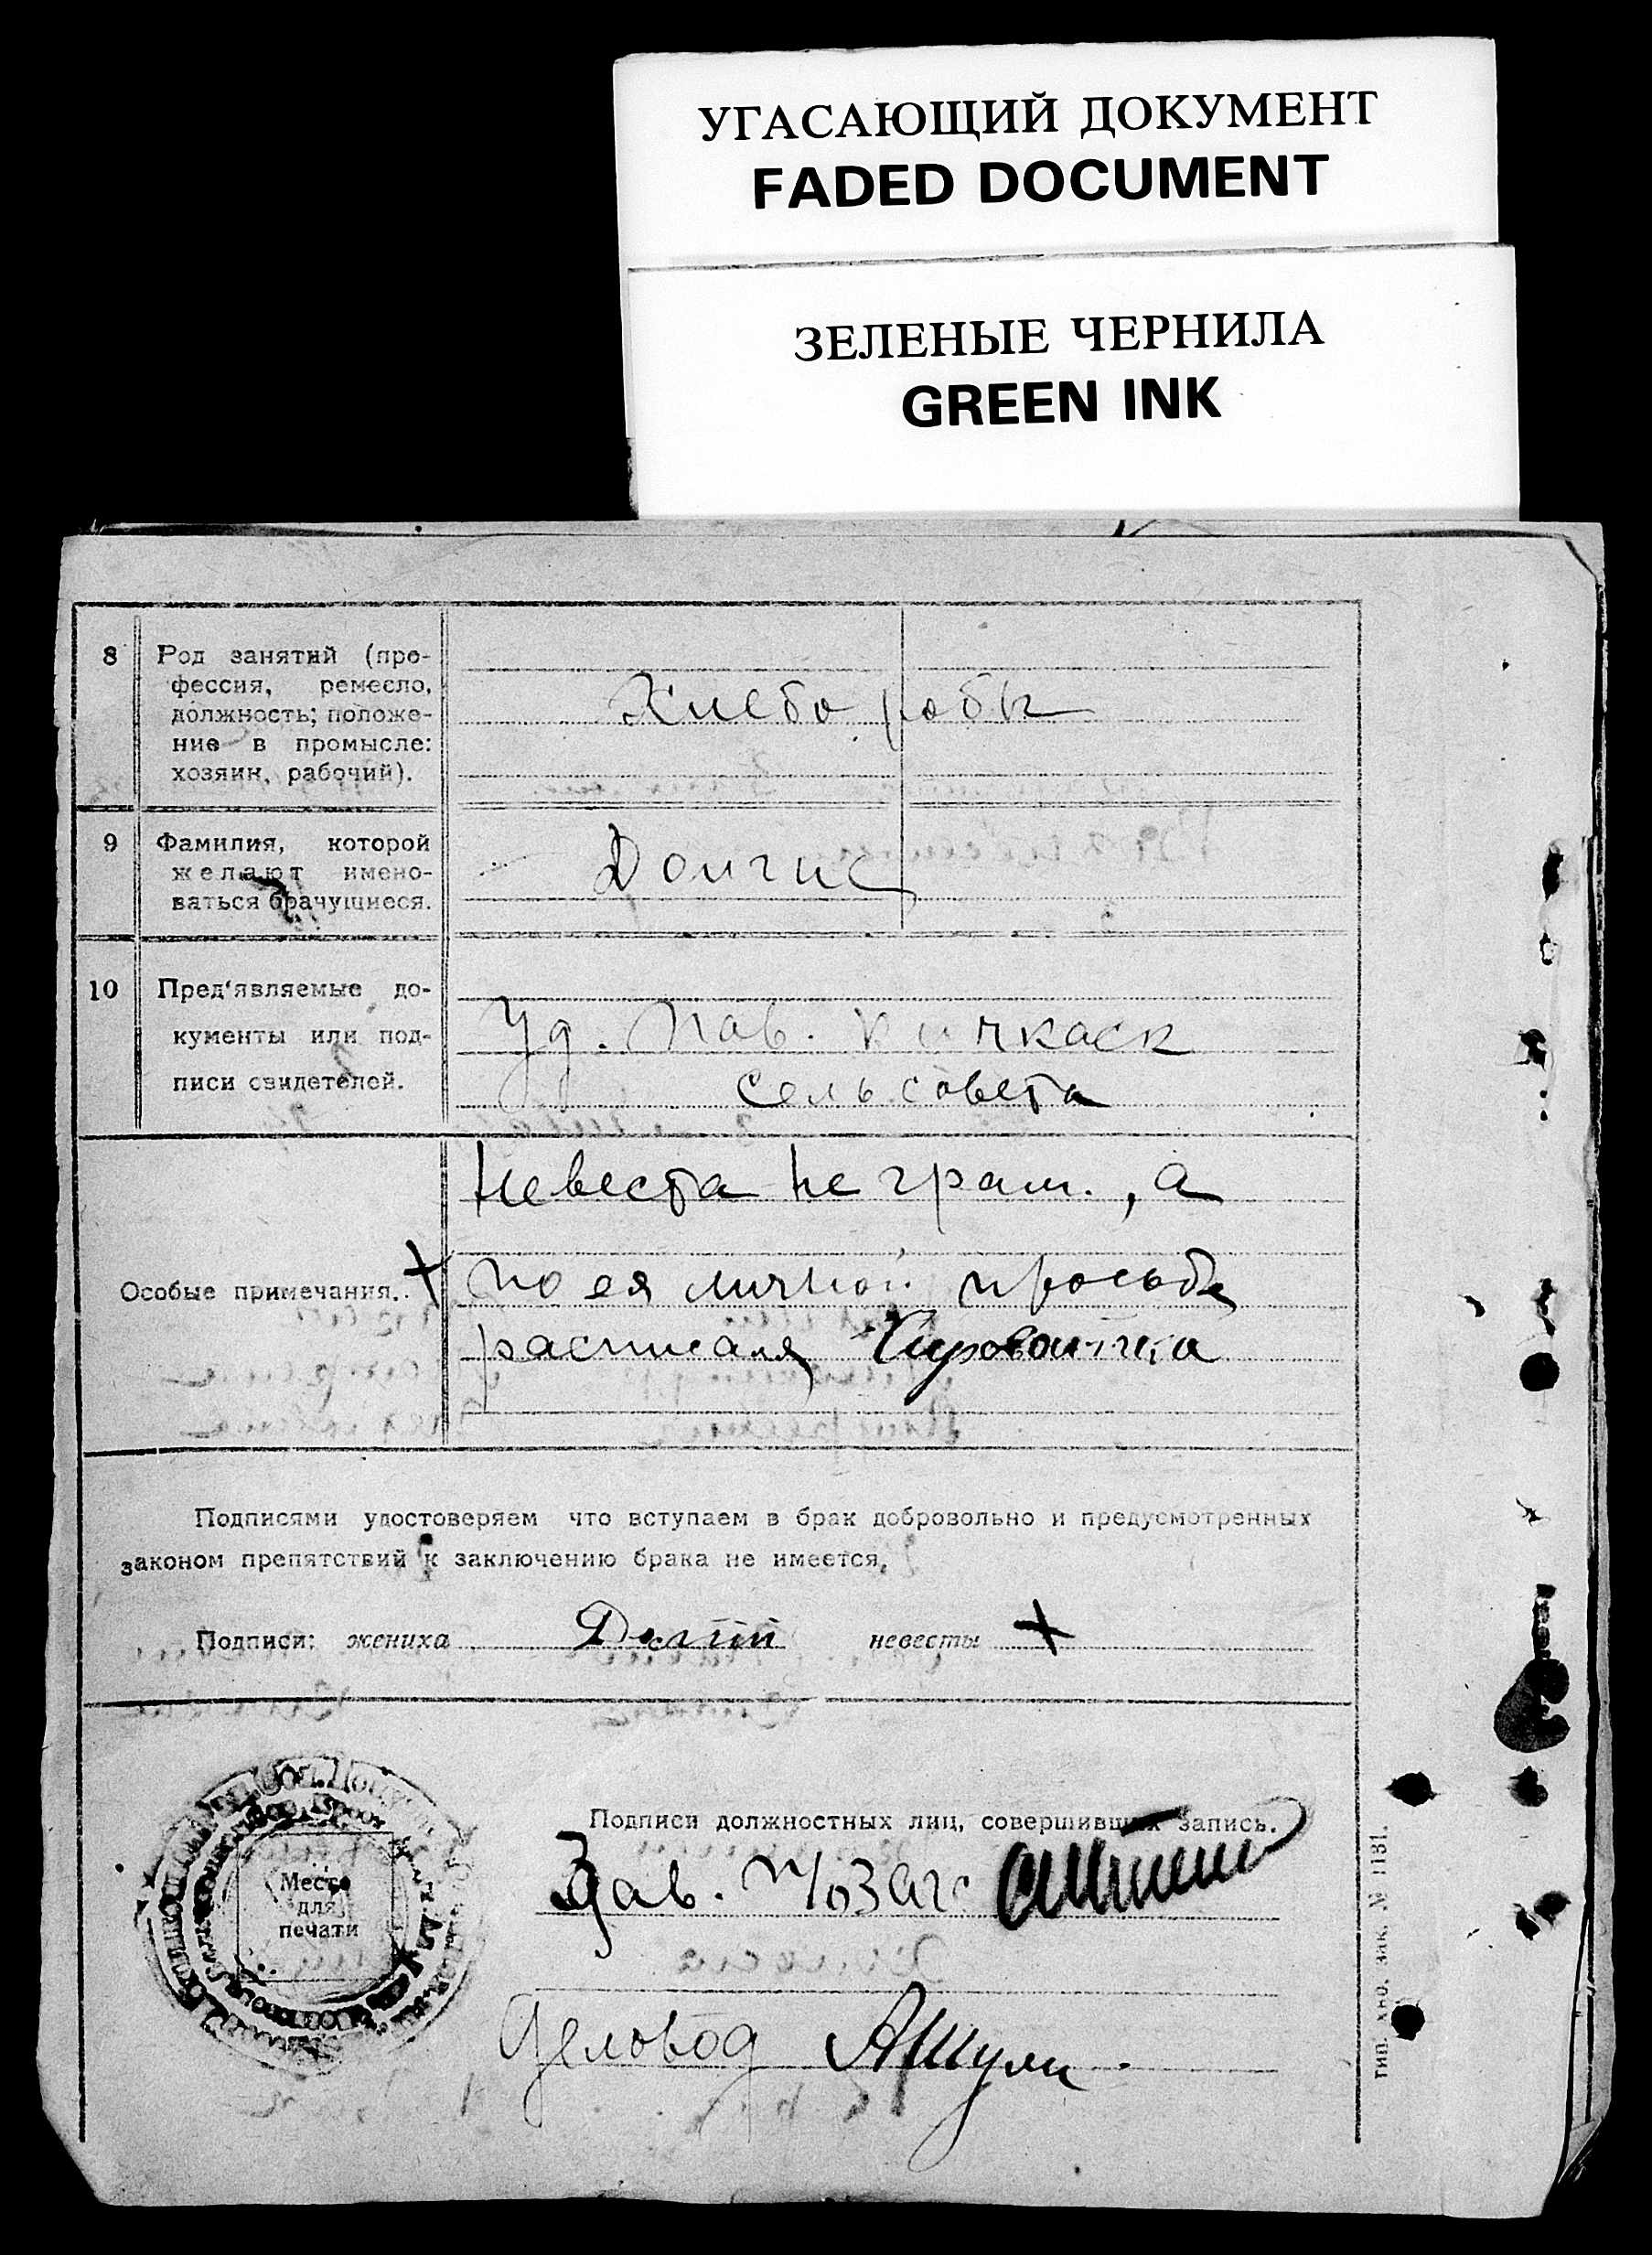 УГАСАЮЩИЙ ДОКУМЕНТ
FADED DOCUMENT
ЗЕЛЕНЫЕ ЧЕРНИЛА
GREEN INK
8 Род занятий (про-
фессия, ремесло,
должность; положе-
ние в промысле:
хозяин, рабочий).
Хлеборобы
9 Фамилия, которой
желают имено-
ваться брачущиеся.
10 Пред'являемые до-
кументы или под-
писи свидетелей.
Уд. Пав. Кичкаск
сельсовета
Особые примечания.
Невеста не грам., а
+ по ея личной просьбе
расписаля
Подписями удостоверяем что вступаем в брак добровольно и предусмотренных
законом препятствий к заключению брака не имеется.
Подписи: жениха невесты +
Место
для
печати
Подписи должностных лиц, совершивших запись.
Зав. п/озагс
Деловод
тип. хно. зак. № 1131.